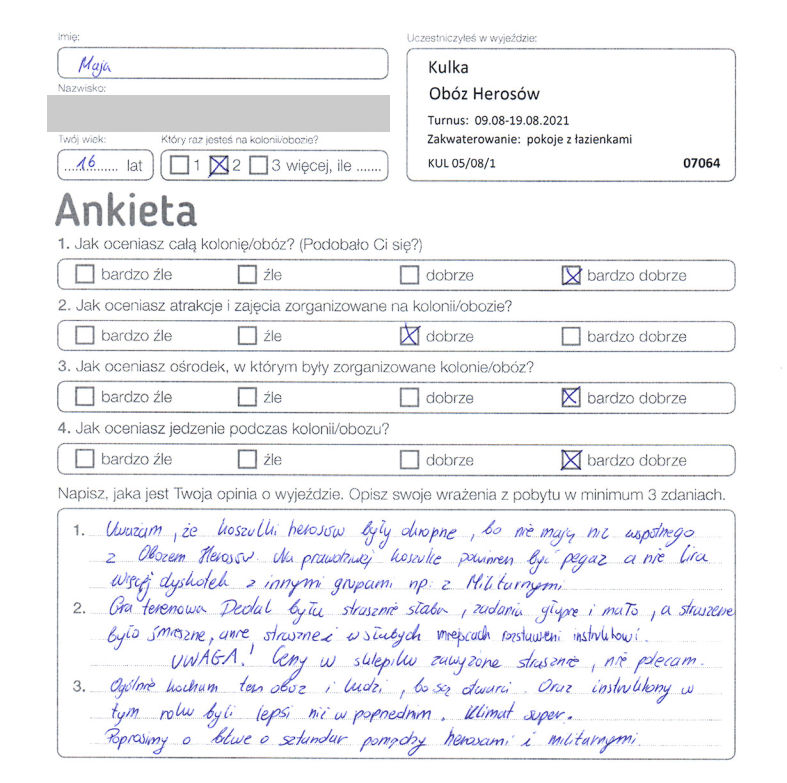 Imię:
Maja
Nazwisko:
Twój wiek:
16 lat
Który raz jesteś na kolonii/obozie?
1 2 3 więcej, ile .......
Uczestniczyłeś w wyjeździe:
Kulka
Obóz Herosów
Turnus: 09.08-19.08.2021
Zakwaterowanie: pokoje z łazienkami
KUL 05/08/1 07064
Ankieta
1. Jak oceniasz całą kolonię/obóz? (Podobało Ci się?)
bardzo źle źle dobrze bardzo dobrze
2. Jak oceniasz atrakcje i zajęcia zorganizowane na kolonii/obozie?
bardzo źle źle dobrze bardzo dobrze
3. Jak oceniasz ośrodek, w którym były zorganizowane kolonie/obóz?
bardzo źle źle dobrze bardzo dobrze
4. Jak oceniasz jedzenie podczas kolonii/obozu?
bardzo źle źle dobrze bardzo dobrze
Napisz, jaka jest Twoja opinia o wyjeździe. Opisz swoje wrażenia z pobytu w minimum 3 zdaniach.
1. Uważam, że koszulki herosów były okropne, bo nie mają nic wspólnego
z Obozem Herosów. Na prawdziwej koszulce powinien być pegaz a nie lira
Więcej dyskotek z innymi grupami np: z Militarnymi
2. Gra terenowa Dedal była strasznie słaba, zadania głupie i mało, a straszenie
było śmieszne, a nie straszne i w słabych miejscach rozstawieni instruktorzy.
UWAGA! Ceny w sklepiku zawyżone strasznie, nie polecam.
3. Ogólnie kocham ten obóz i ludzi, bo są otwarci. Oraz instruktorzy w
tym roku byli lepsi niż w poprzednim. Klimat super.
Poprosimy o bitwe o sztandar pomiędzy herosami i militarnymi.